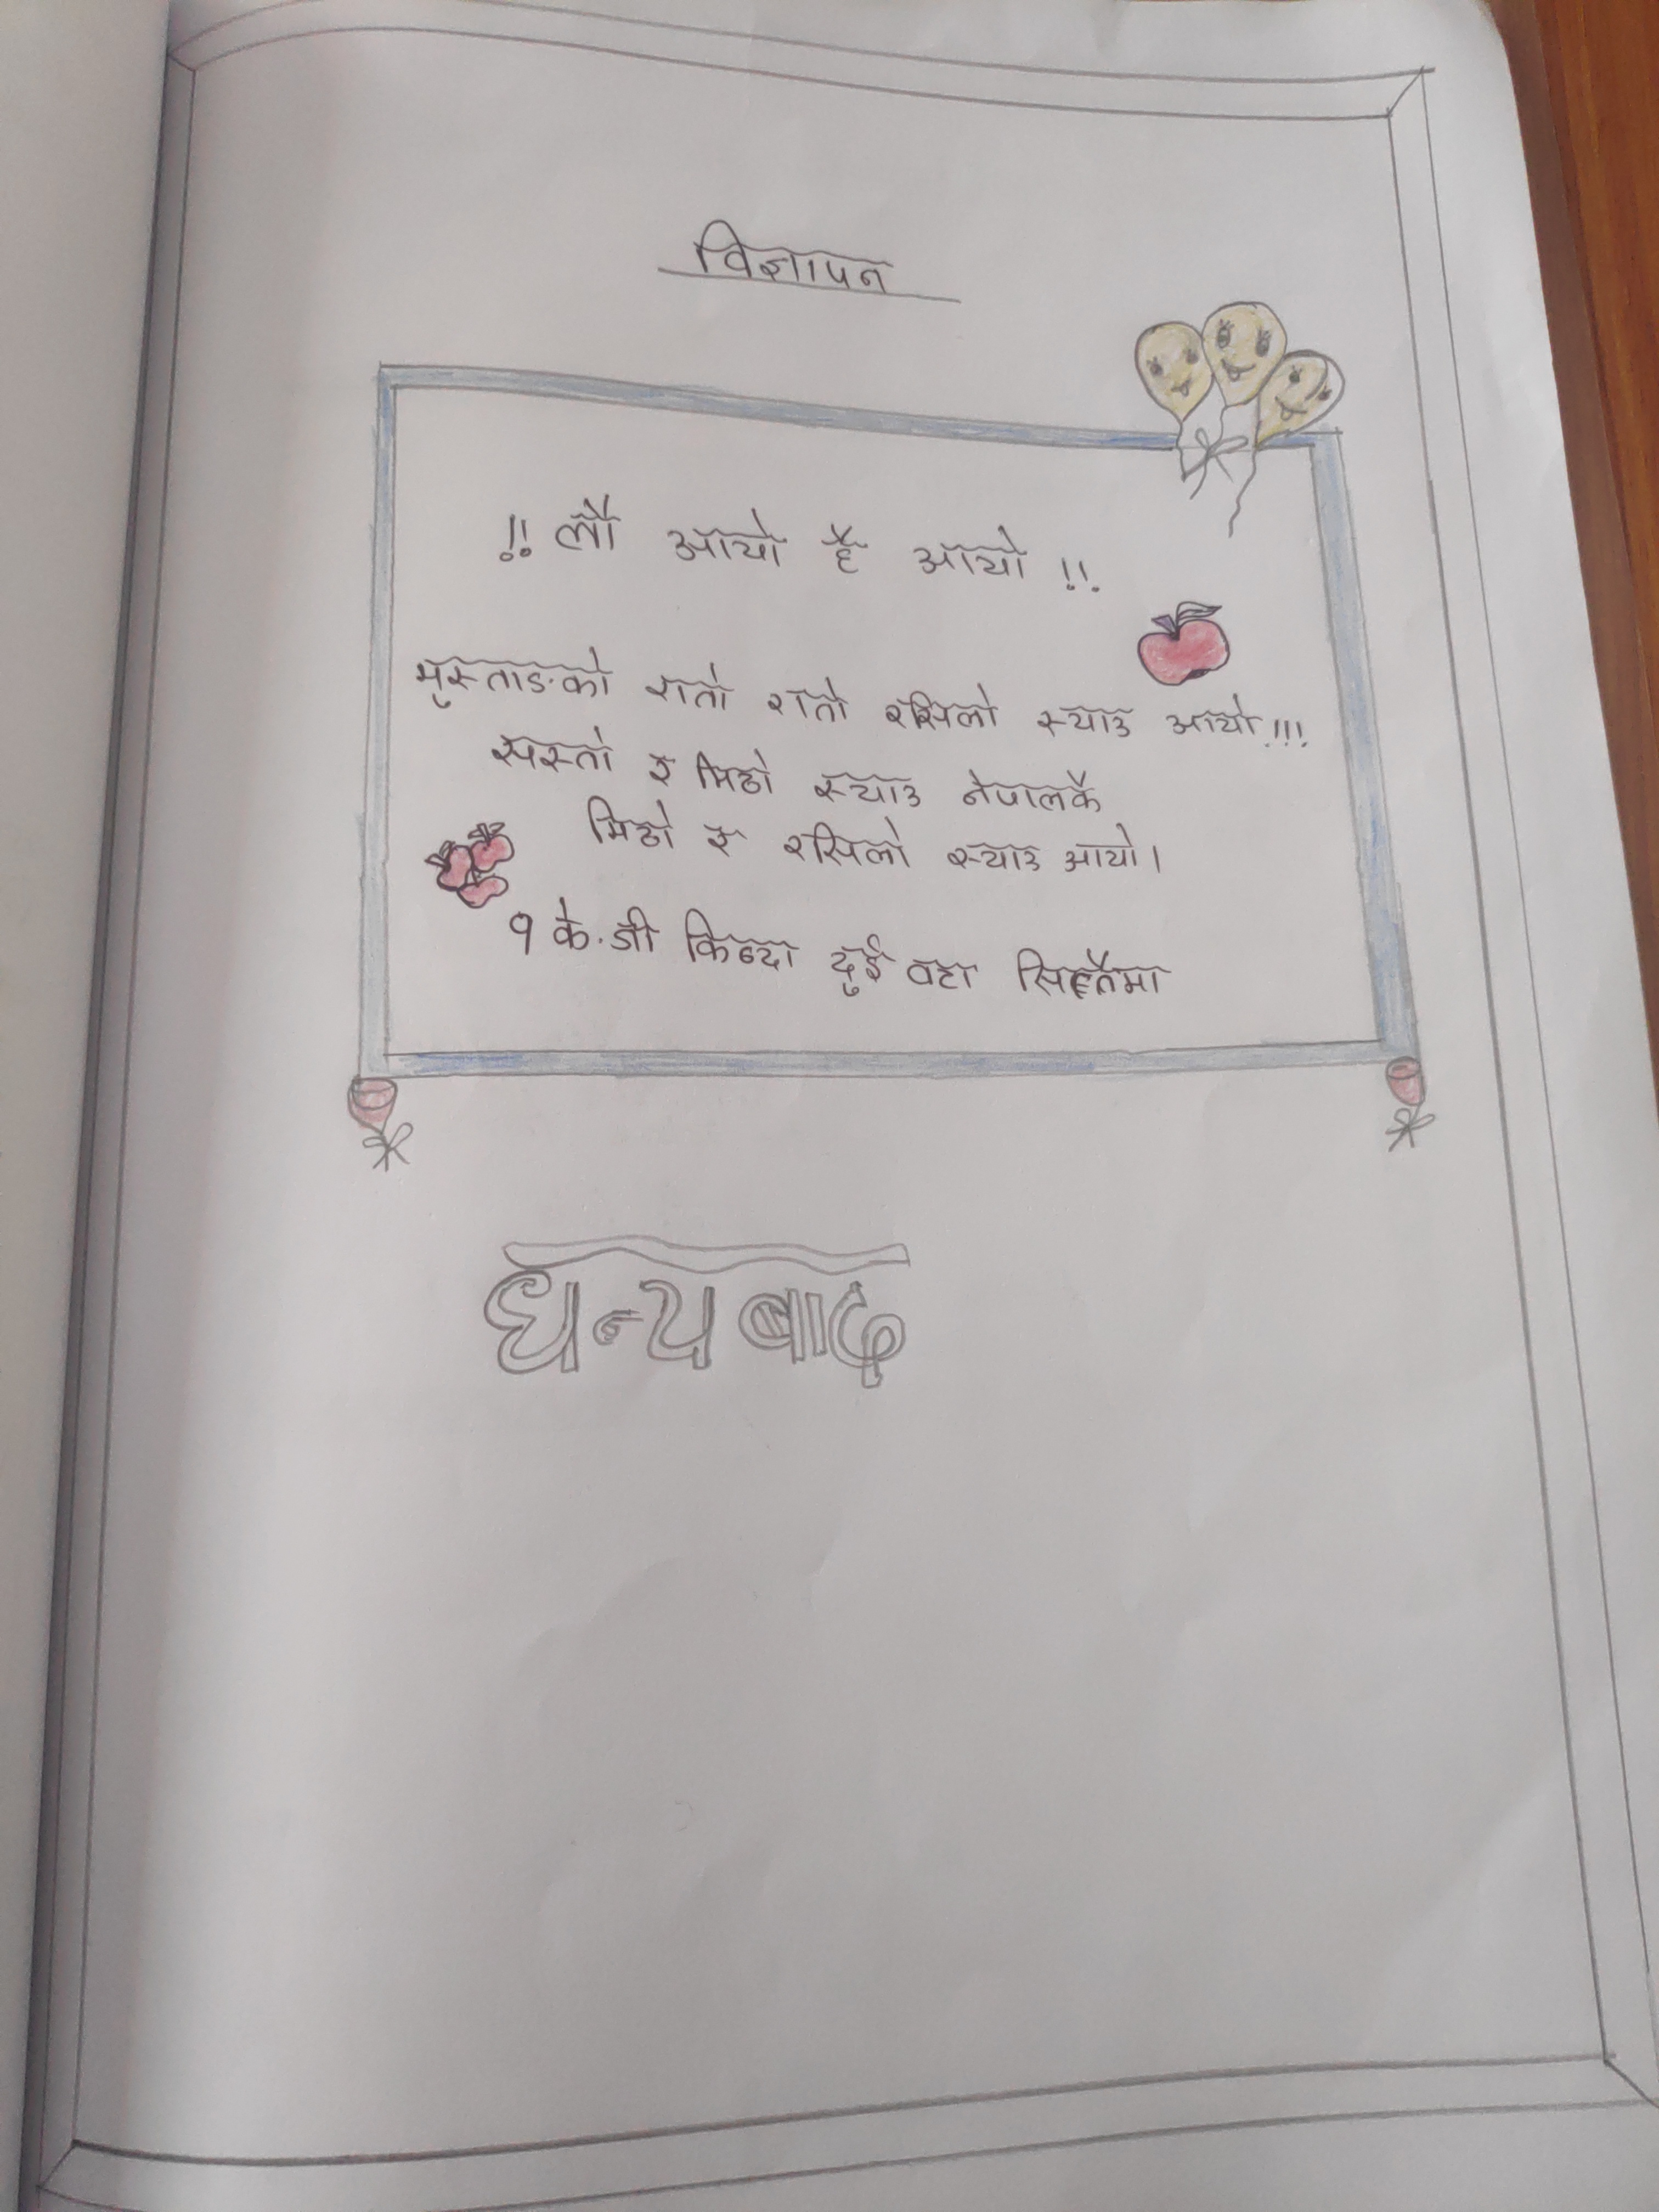 विज्ञापन
!! लौ आयो है आयो !!
मुस्ताङको रातो रातो रसिलो स्याउ आयो!!!
सस्तो र मिठो स्याउ नेपालकै
मिठो र रसिलो स्याउ आयो।
१ के.जी किन्दा दुई वटा सित्तैमा
धन्यबाद